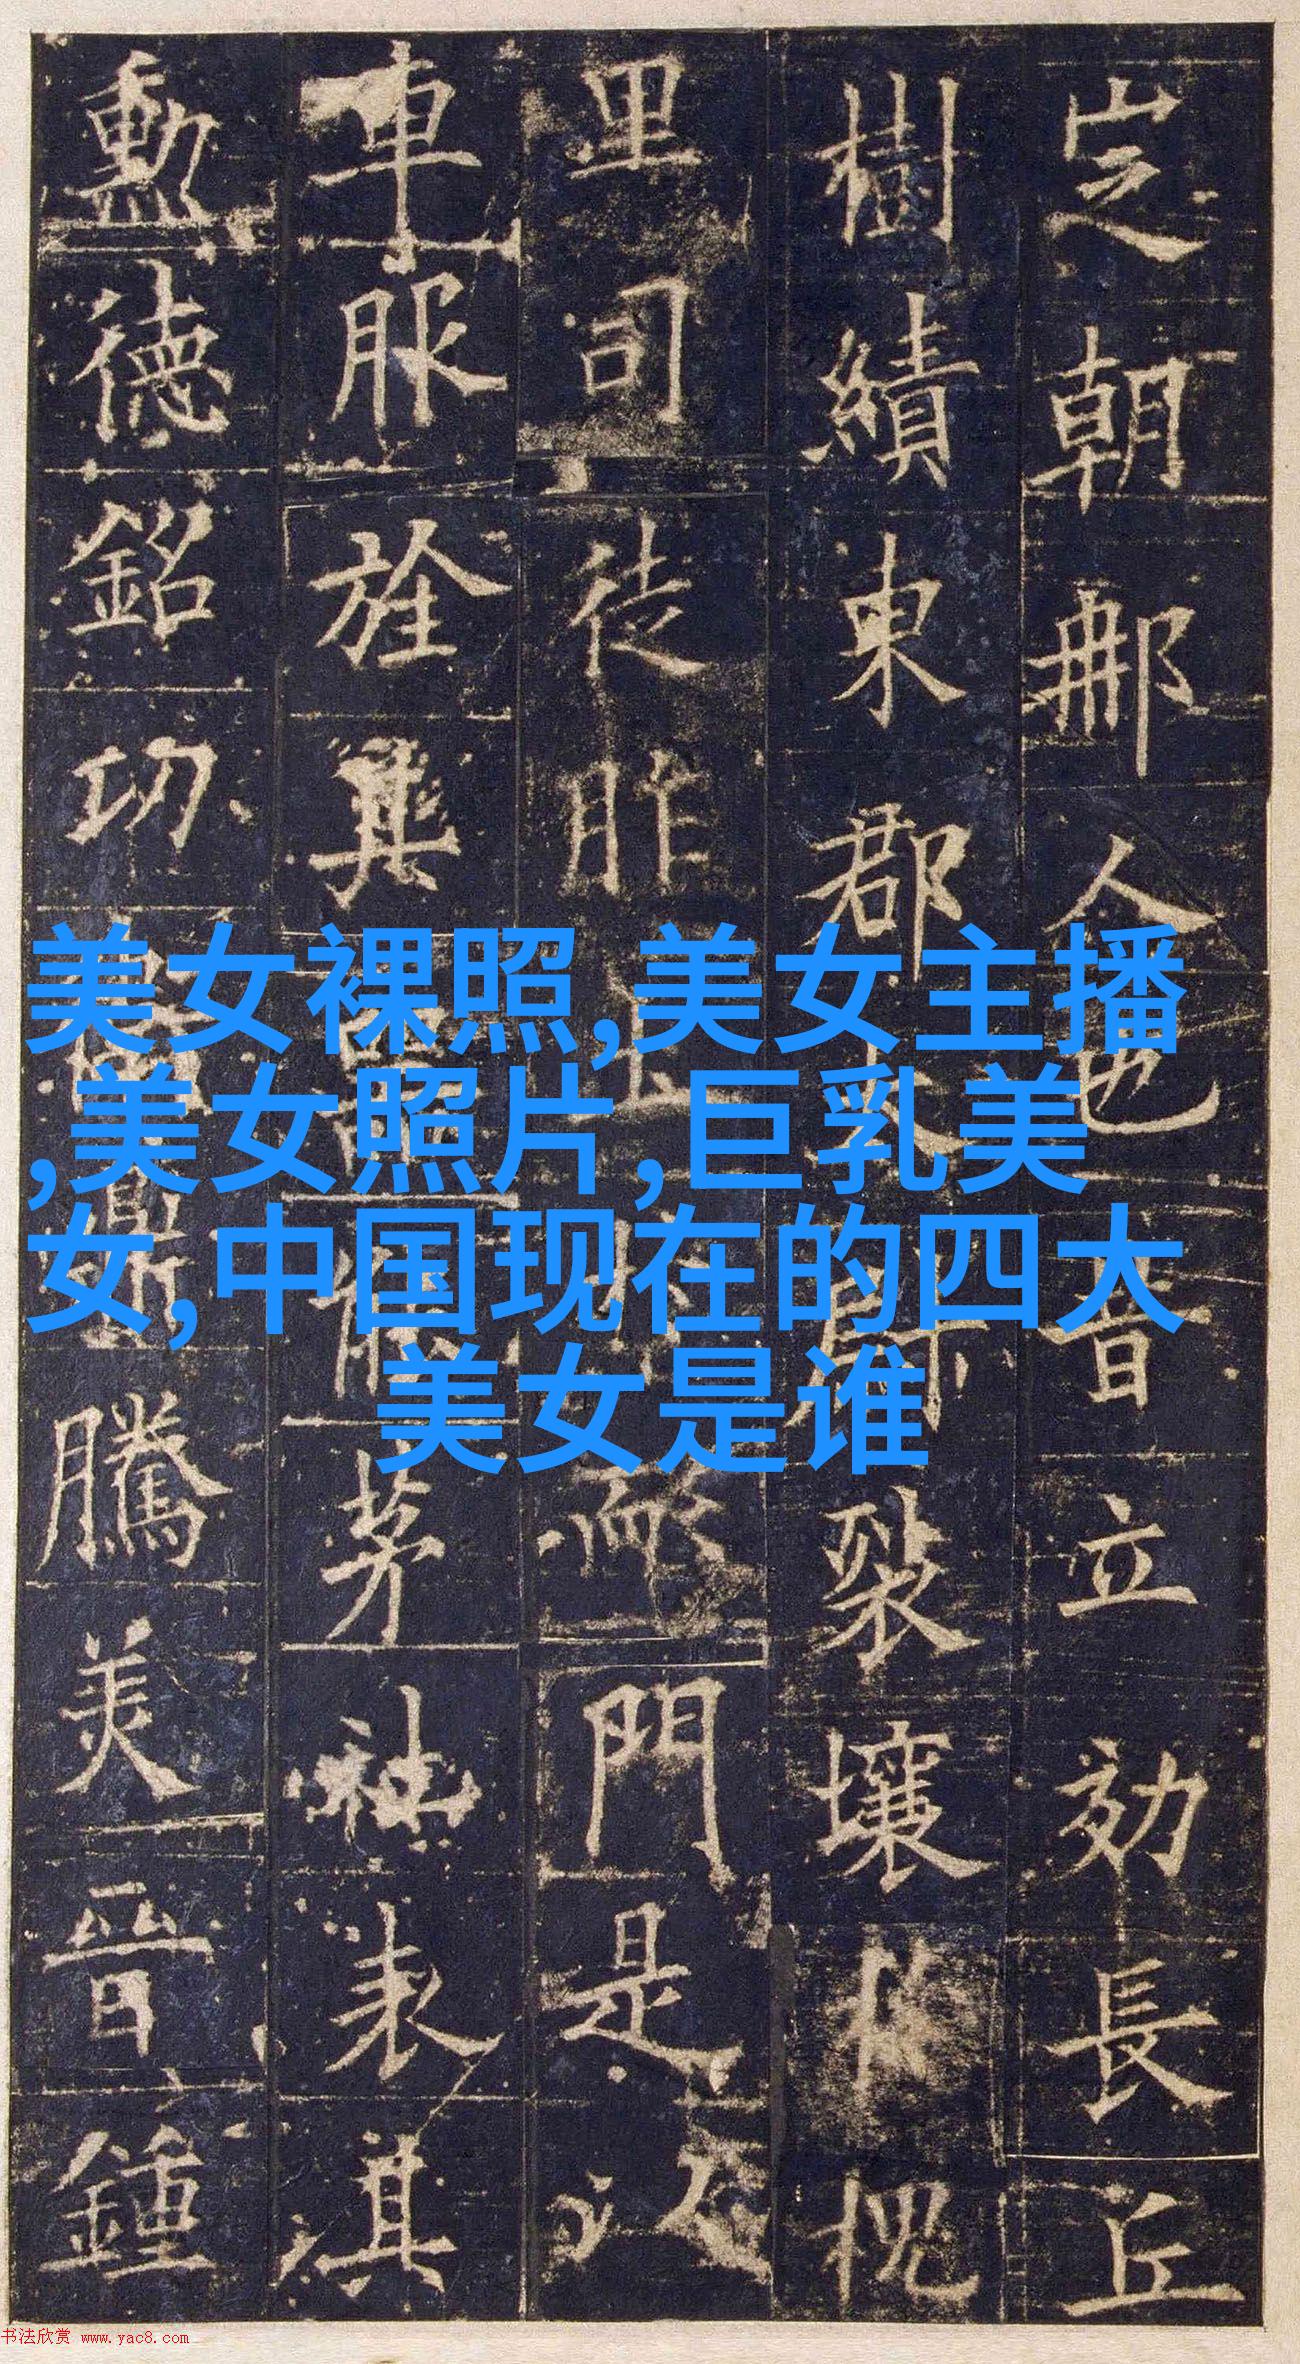 㝎朝邢人也昔立効長丘
樹績東郡太裂壤槐
里司徒胙土門是
車服旌其器能茅社表淇
勲德銘功鼎騰美晉鍾
美女裸照,美女主播
,美女照片,巨乳美
女,中国现在的四大
美女是谁
书法欣赏 www.yac8.com